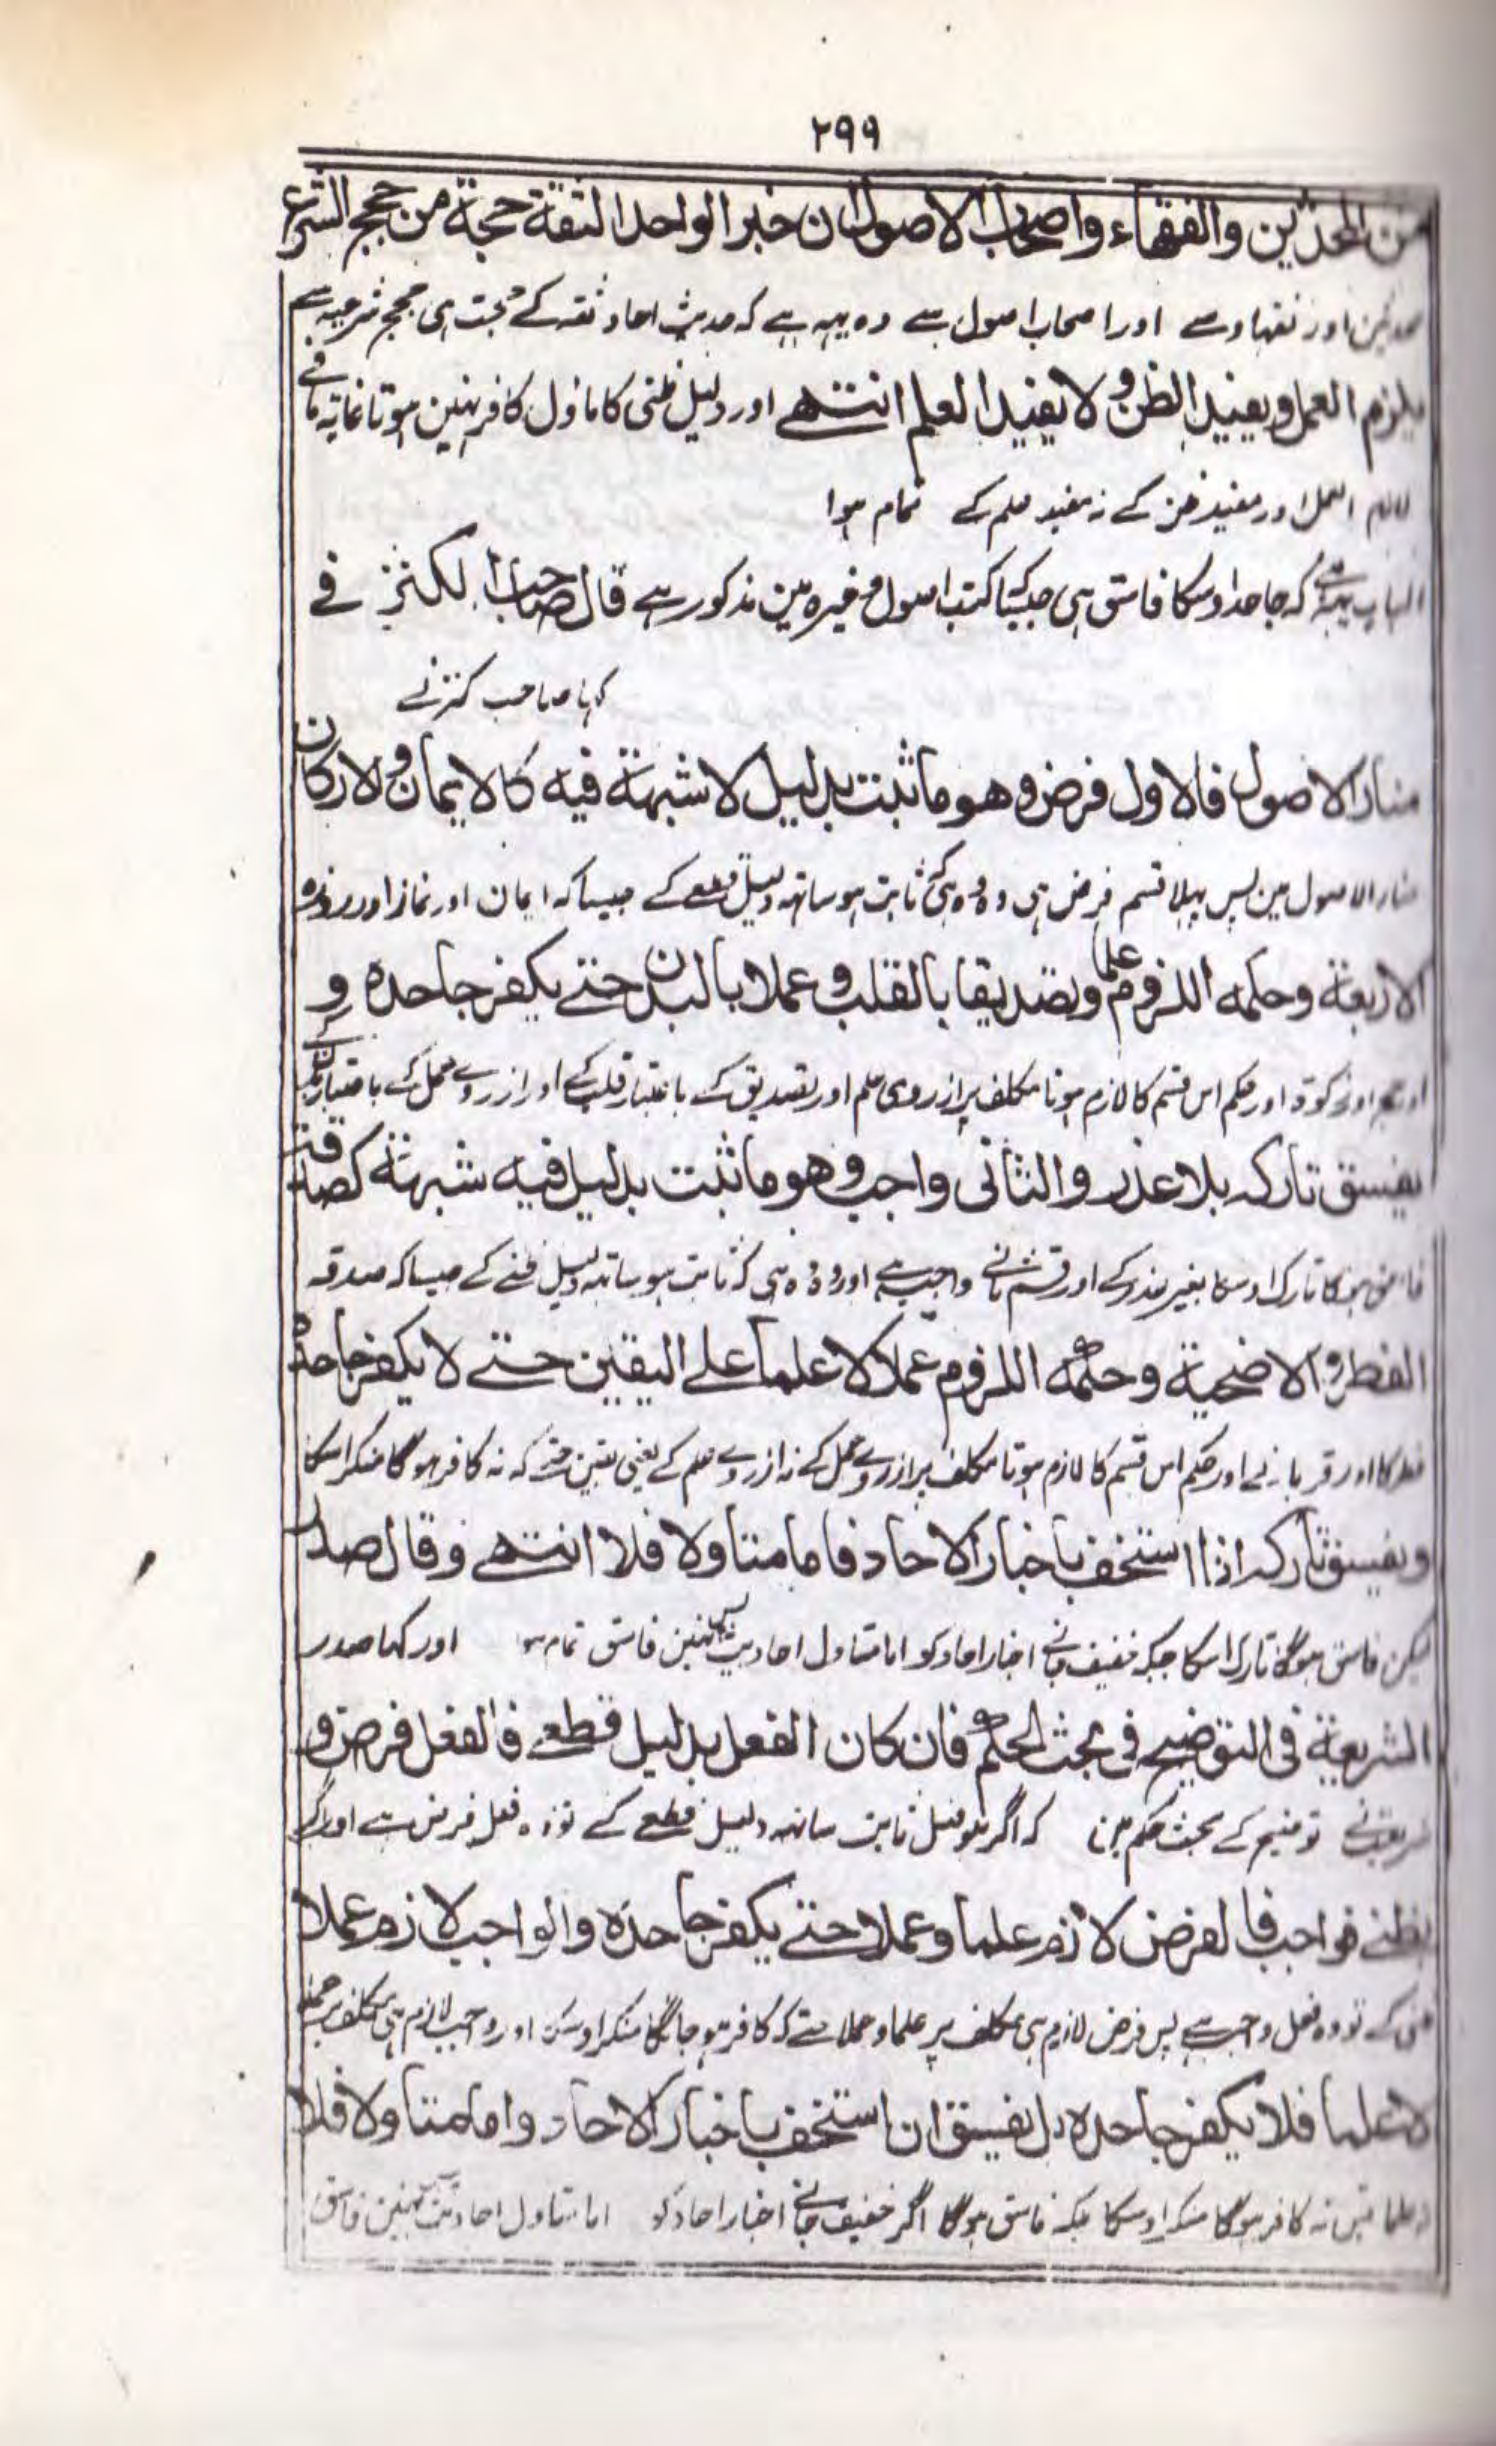 ۲۹۹
من المحدثين والفقهاء واصحاب الاصول ان خبر الواحد الثقة حجة من حجج الشرع
محدثین اور فقہاء سے اور اصحاب اصول سے وہ یہہ ہے کہ حدیث احاد ثقہ کے حجت ہی حجج شرعیہ سے
يلزم العمل ويفيد الظن ولا يفيد العلم انتهے اور دلیل ظنی کا ماؤل کافر نہین ہوتا غایۃ ما فے
لازم العمل اور مفید ظن کے نہ مفید علم کے تمام ہوا
الباب یہہ ہے کہ جاحد اوسکا فاسق ہی جیسیا کتب اصول وغیرہ مین مذکور ہے قال صاحب الكنز فے
کہا صاحب کنز نے
منار الاصول فالاول فرض وهو ما ثبت بدليل لا شبهة فيه كالايمان والاركان
منار الاصول مین پس پہلا قسم فرض ہی و وہ ہی کہ ثابت ہو ساتہہ دلیل قطعے کے جیسا کہ ایمان اور نماز اور روزہ
الاربعة وحكمه اللزوم علما وتصديقا بالقلب وعملا بالبدن حتے يكفر جاحده و
اور حج اور زکوۃ اور حکم اس قسم کا لازم ہوتا مکلف پر از روی علم اور تصدیق کے باعتبار قلب کے اور از روے عمل کے باعتبار بدن کے
يفسق تاركه بلا عذر والثانی واجب وهو ما ثبت بدليل فيه شبهة كصدقة
فاسق ہوگا تارک اوسکا بغیر عذر کے اور قسم ثانے واجب ہے اور وہ وہ ہی کہ ثابت ہو ساتہہ دلیل ظنے کے جیسا کہ صدقہ
الفطر والاضحية وحكمه اللزوم عملا لا علما علے اليقين حتے لا يكفر جاحده
فطر کا اور قربانے اور حکم اس قسم کا لازم ہوتا مکلف پر از روے عمل کے نہ از روے علم کے یعنی یقین حتے کہ نہ کافر ہوگا منکر اسکا
ويفسق تاركه اذا استخف باخبار الاحاد فاما متاولا فلا انتهے وقال صدر
لیکن فاسق ہوگا تارک اسکا جبکہ خفیف جانے اخبار احاد کو اما متاول احادیث پس نہین فاسق تمام ہوا اور کہا صدر
الشريعة فی التوضيح فی بحث الحكم فان كان الفعل بدليل قطعے فالفعل فرض و
شریعت نے توضیح کے بحث حکم مین کہ اگر ہو فعل ثابت ساتہہ دلیل قطعے کے تو وہ فعل فرض ہے اور اگر
بظنے فواجب فالفرض لازم علما وعملا حتے يكفر جاحده والواجب لازم عملا
ظنی کے تو وہ فعل واجب ہے پس فرض لازم ہی مکلف پر علما و عملا حتے کہ کافر ہو جائیگا منکر اوسکا اور واجب لازم ہی مکلف پر عملا
لا علما فلا يكفر جاحده بل يفسق ان استخف باخبار الاحاد واما متاولا فلا
نہ علما پس نہ کافر ہوگا منکر اوسکا بلکہ فاسق ہوگا اگر خفیف جانے اخبار احاد کو اما متاول احادیث پس نہین فاسق